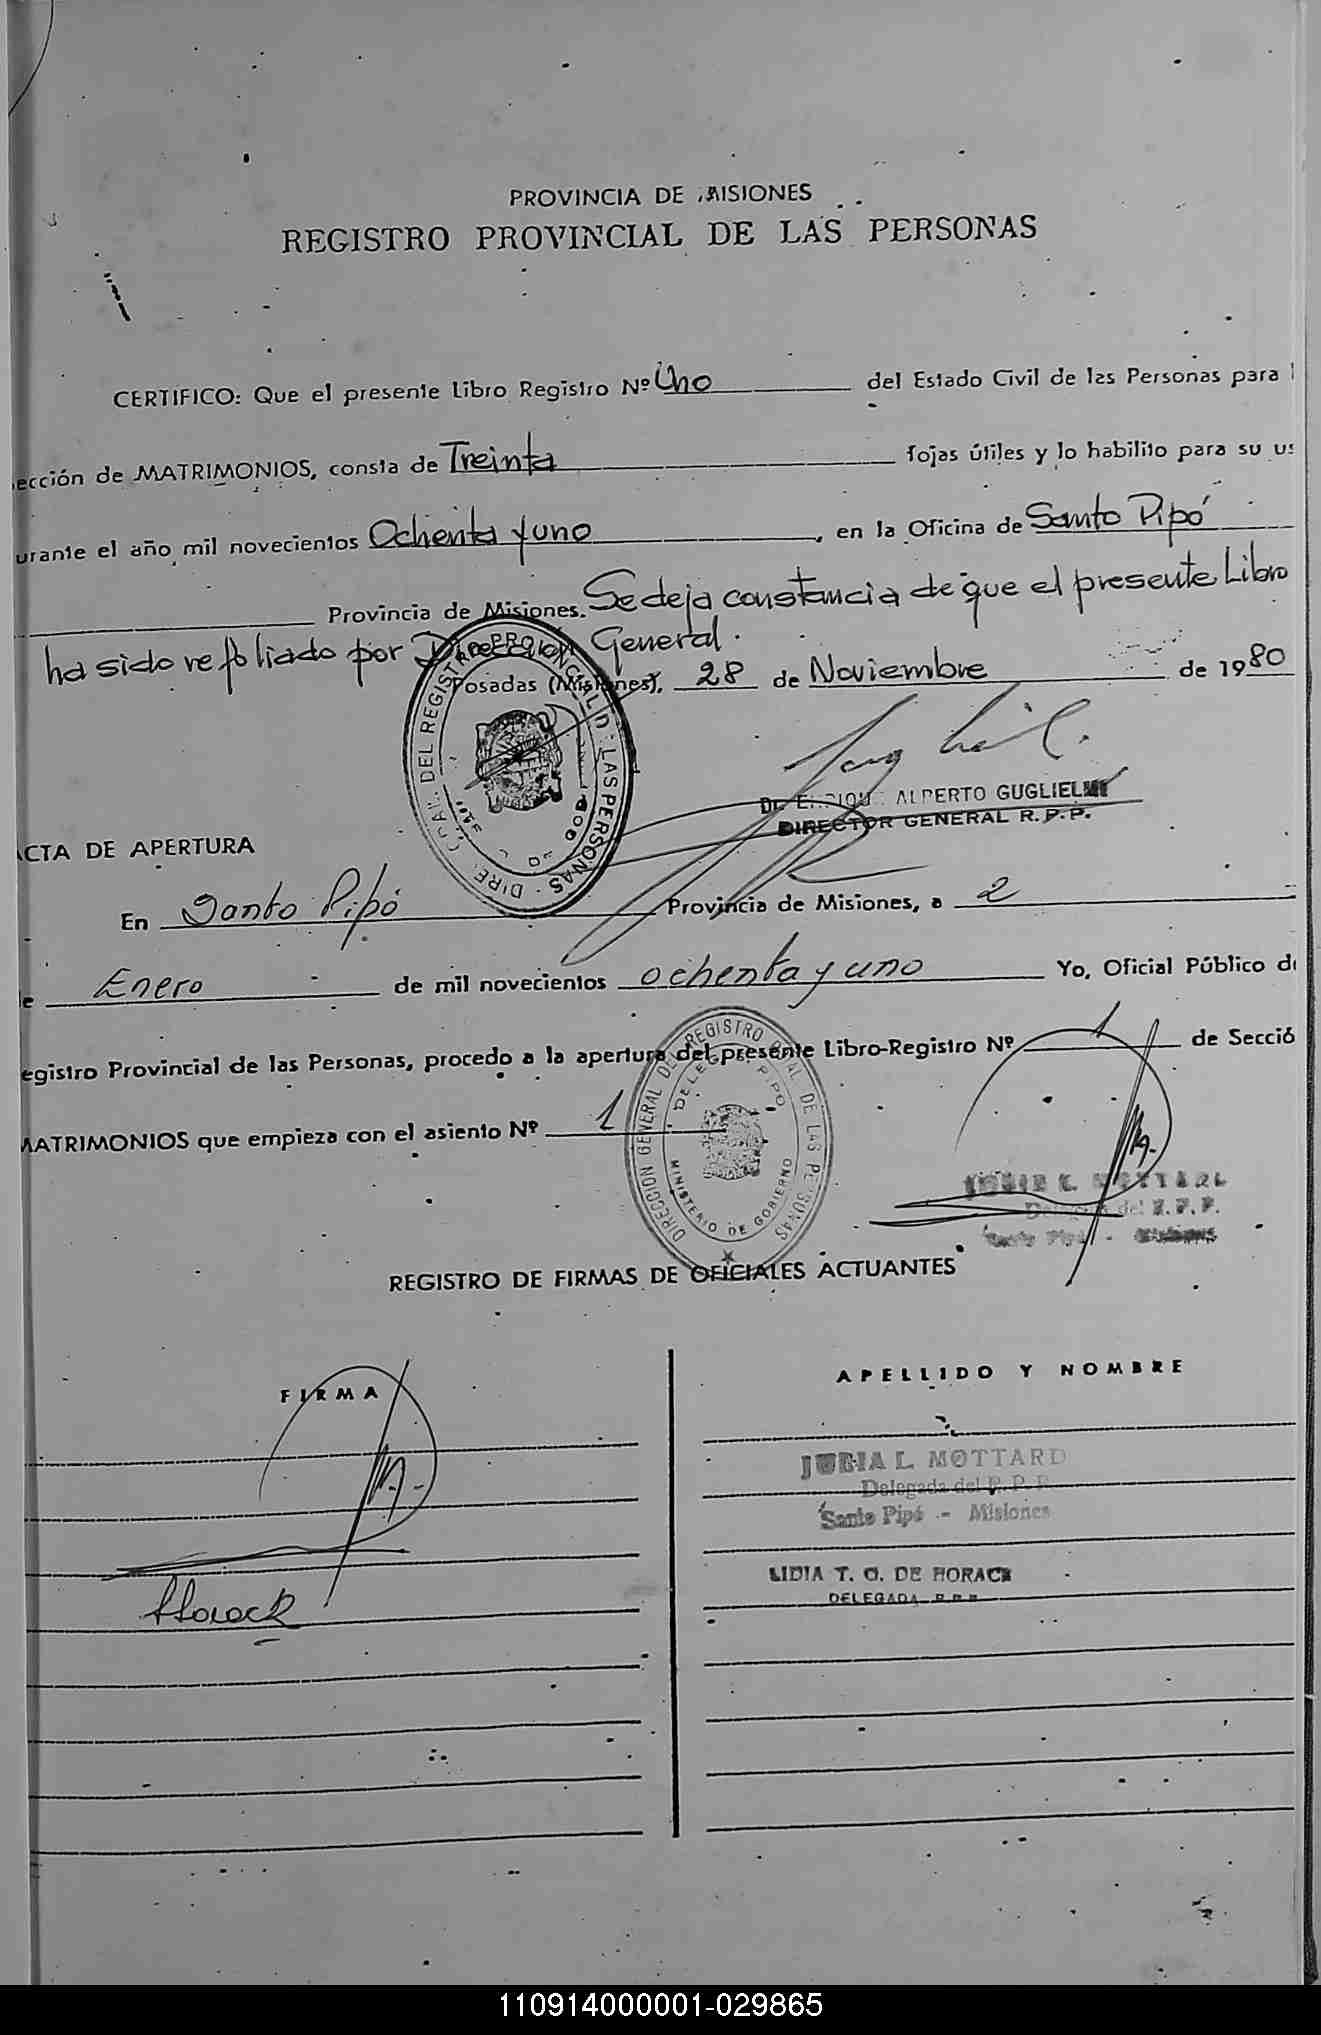 PROVINCIA DE MISIONES
REGISTRO PROVINCIAL DE LAS PERSONAS
CERTIFICO: Que el presente Libro Registro Nº Uno del Estado Civil de las Personas para l
ección de MATRIMONIOS, consta de Treinta fojas útiles y lo habilito para su us
urante el año mil novecientos Ochenta y uno, en la Oficina de Santo Pipó
Provincia de Misiones. Se deja constancia de que el presente Libro
ha sido refoliado por Dirección General.
Posadas (Misiones), 28 de Noviembre de 1980
DIRE. GRAL. DEL REGISTRO PROVINCIAL D. LAS PERSONAS
Dr. ENRIQUE ALBERTO GUGLIELMI
DIRECTOR GENERAL R.P.P.
ACTA DE APERTURA
En Santo Pipó Provincia de Misiones, a 2
e Enero de mil novecientos ochenta y uno Yo, Oficial Público de
egistro Provincial de las Personas, procedo a la apertura del presente Libro-Registro Nº 1 de Secció
MATRIMONIOS que empieza con el asiento Nº 1
DIRECCION GENERAL DEL REGISTRO PCIAL DE LAS PERSONAS
MINISTERIO DE GOBIERNO
MOTTARD
Delegada del R.P.P.
Santo Pipó - Misiones
REGISTRO DE FIRMAS DE OFICIALES ACTUANTES
FIRMA
APELLIDO Y NOMBRE
L. MOTTARD
Delegada del R.P.P.
Santo Pipó - Misiones
LIDIA T. O. DE HORACK
DELEGADA R.P.P.
Horack
110914000001-029865